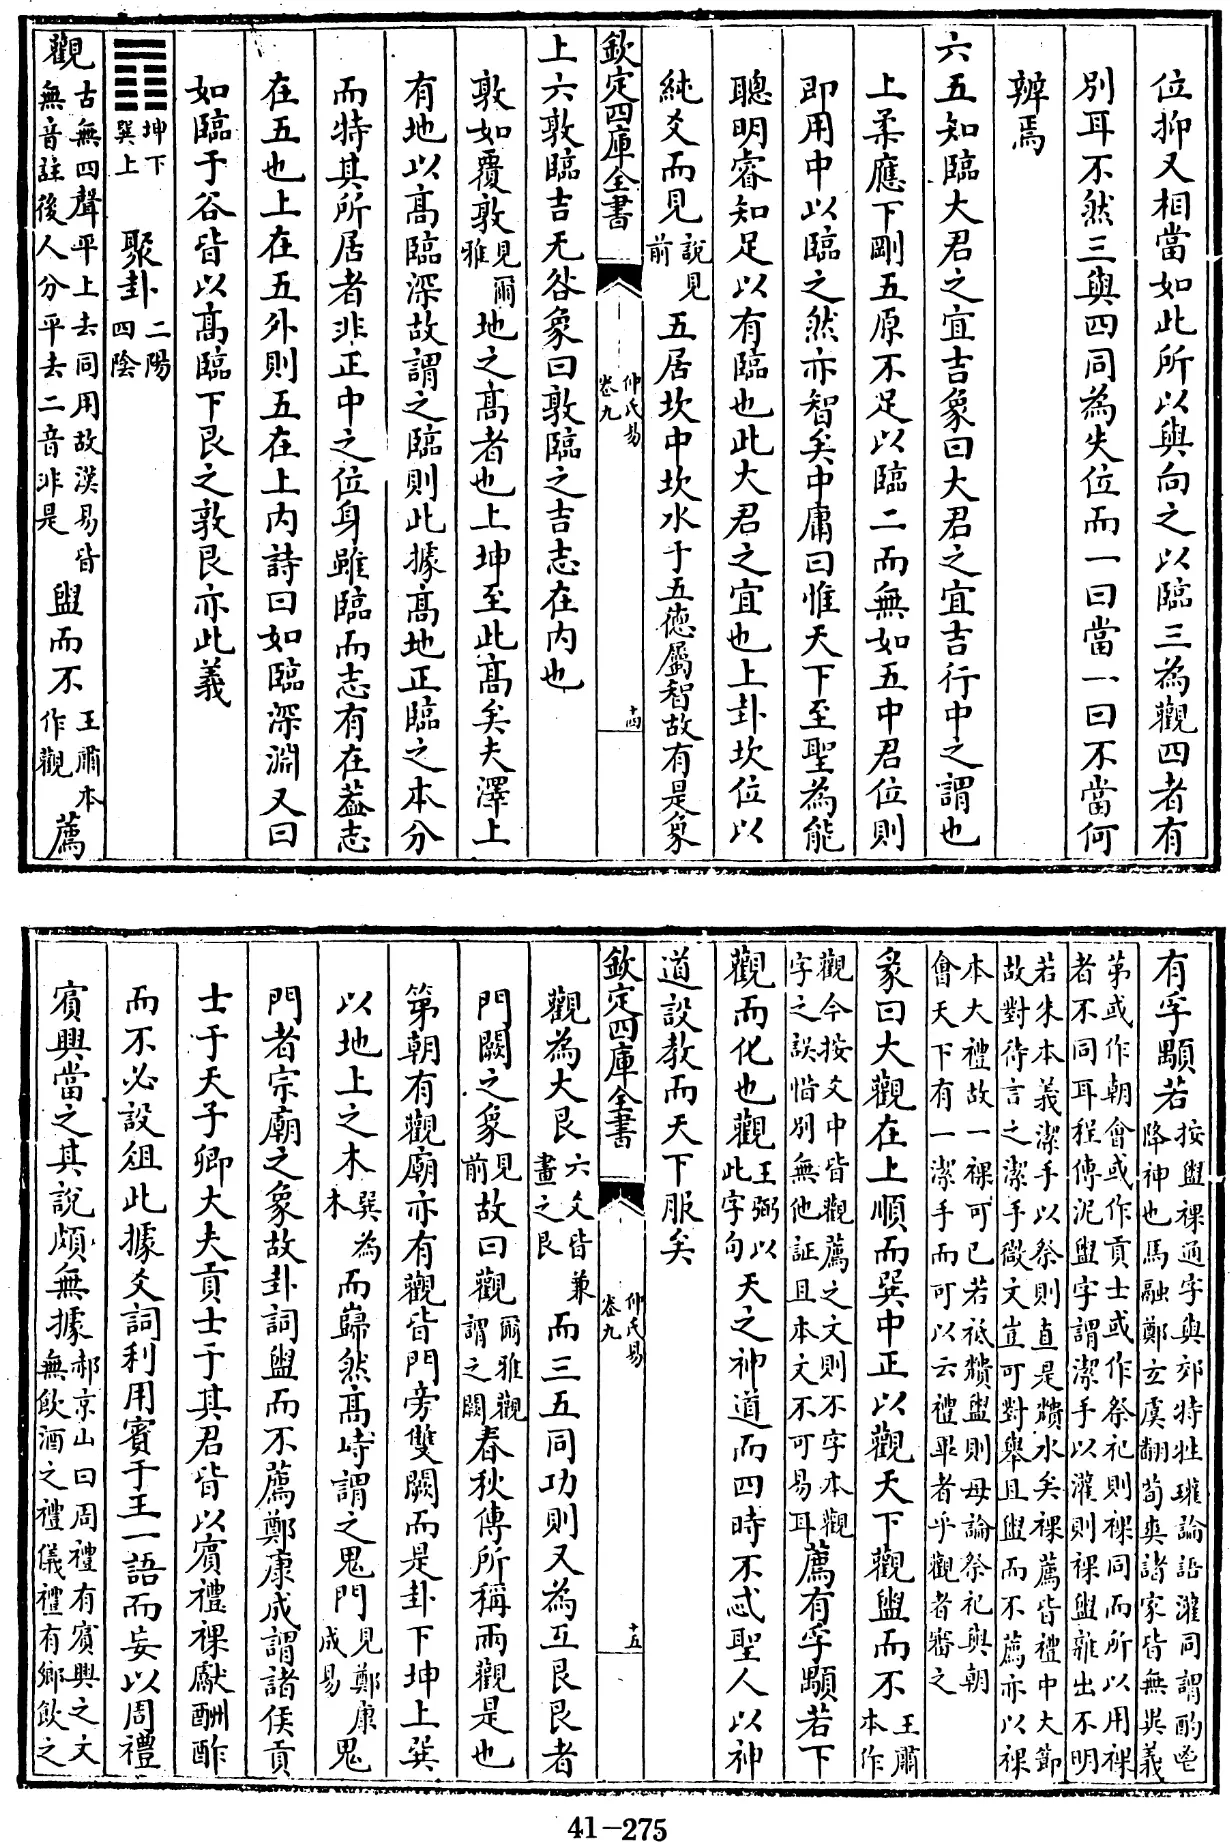 位抑又相當如此所以與向之以臨三為觀四者有
別耳不然三與四同為失位而一曰當一曰不當何
辨焉
六五知臨大君之宜吉象曰大君之宜吉行中之謂也
上柔應下剛五原不足以臨二而無如五中君位則
即用中以臨之然亦智矣中庸曰惟天下至聖為能
聰明睿知足以有臨也此大君之宜也上卦坎位以
純爻而見說見前五居坎中坎水于五德屬智故有是象
欽定四庫全書
仲氏易
卷九
十四
上六敦臨吉无咎象曰敦臨之吉志在內也
敦如覆敦見爾雅地之高者也上坤至此高矣夫澤上
有地以高臨深故謂之臨則此據高地正臨之本分
而特其所居者非正中之位身雖臨而志有在葢志
在五也上在五外則五在上內詩曰如臨深淵又曰
如臨于谷皆以高臨下艮之敦艮亦此義
坤下巽上 聚卦二陽四陰
觀古無四聲平上去同用故漢易皆無音註後人分平去二音非是盥而不王肅本作觀薦
有孚顒若按盥祼通字與郊特牲瓘論語灌同謂酌鬯降神也馬融鄭玄虞翻荀爽諸家皆無異義
第或作朝會或作貢士或作祭祀則祼同而所以用祼者不同耳程傳泥盥字謂潔手以灌則祼盥雜出不明
若朱本義潔手以祭則直是𩠽水矣祼薦皆禮中大節故對待言之潔手微文豈可對舉且盥而不薦亦以祼
本大禮故一祼可已若祗𩠽盥則毋論祭祀與朝會天下有一潔手而可以云禮畢者乎觀者審之
彖曰大觀在上順而巽中正以觀天下觀盥而不王肅本作
觀今按爻中皆觀薦之文則不字本觀字之誤惜別無他証且本文不可易耳薦有孚顒若下
觀而化也觀王弼以此字句天之神道而四時不忒聖人以神
道設教而天下服矣
欽定四庫全書
仲氏易
卷九
十五
觀為大艮六爻皆兼畫之艮而三五同功則又為互艮艮者
門闕之象見前故曰觀爾雅觀謂之闕春秋傳所稱兩觀是也
第朝有觀廟亦有觀皆門旁雙闕而是卦下坤上巽
以地上之木巽為木而巋然高峙謂之鬼門見鄭康成易鬼
門者宗廟之象故卦詞盥而不薦鄭康成謂諸侯貢
士于天子卿大夫貢士于其君皆以賓禮祼獻酬酢
而不必設俎此據爻詞利用賓于王一語而妄以周禮
賓興當之其說頗無據郝京山曰周禮有賓興之文無飲酒之禮儀禮有鄉飲之
41-275